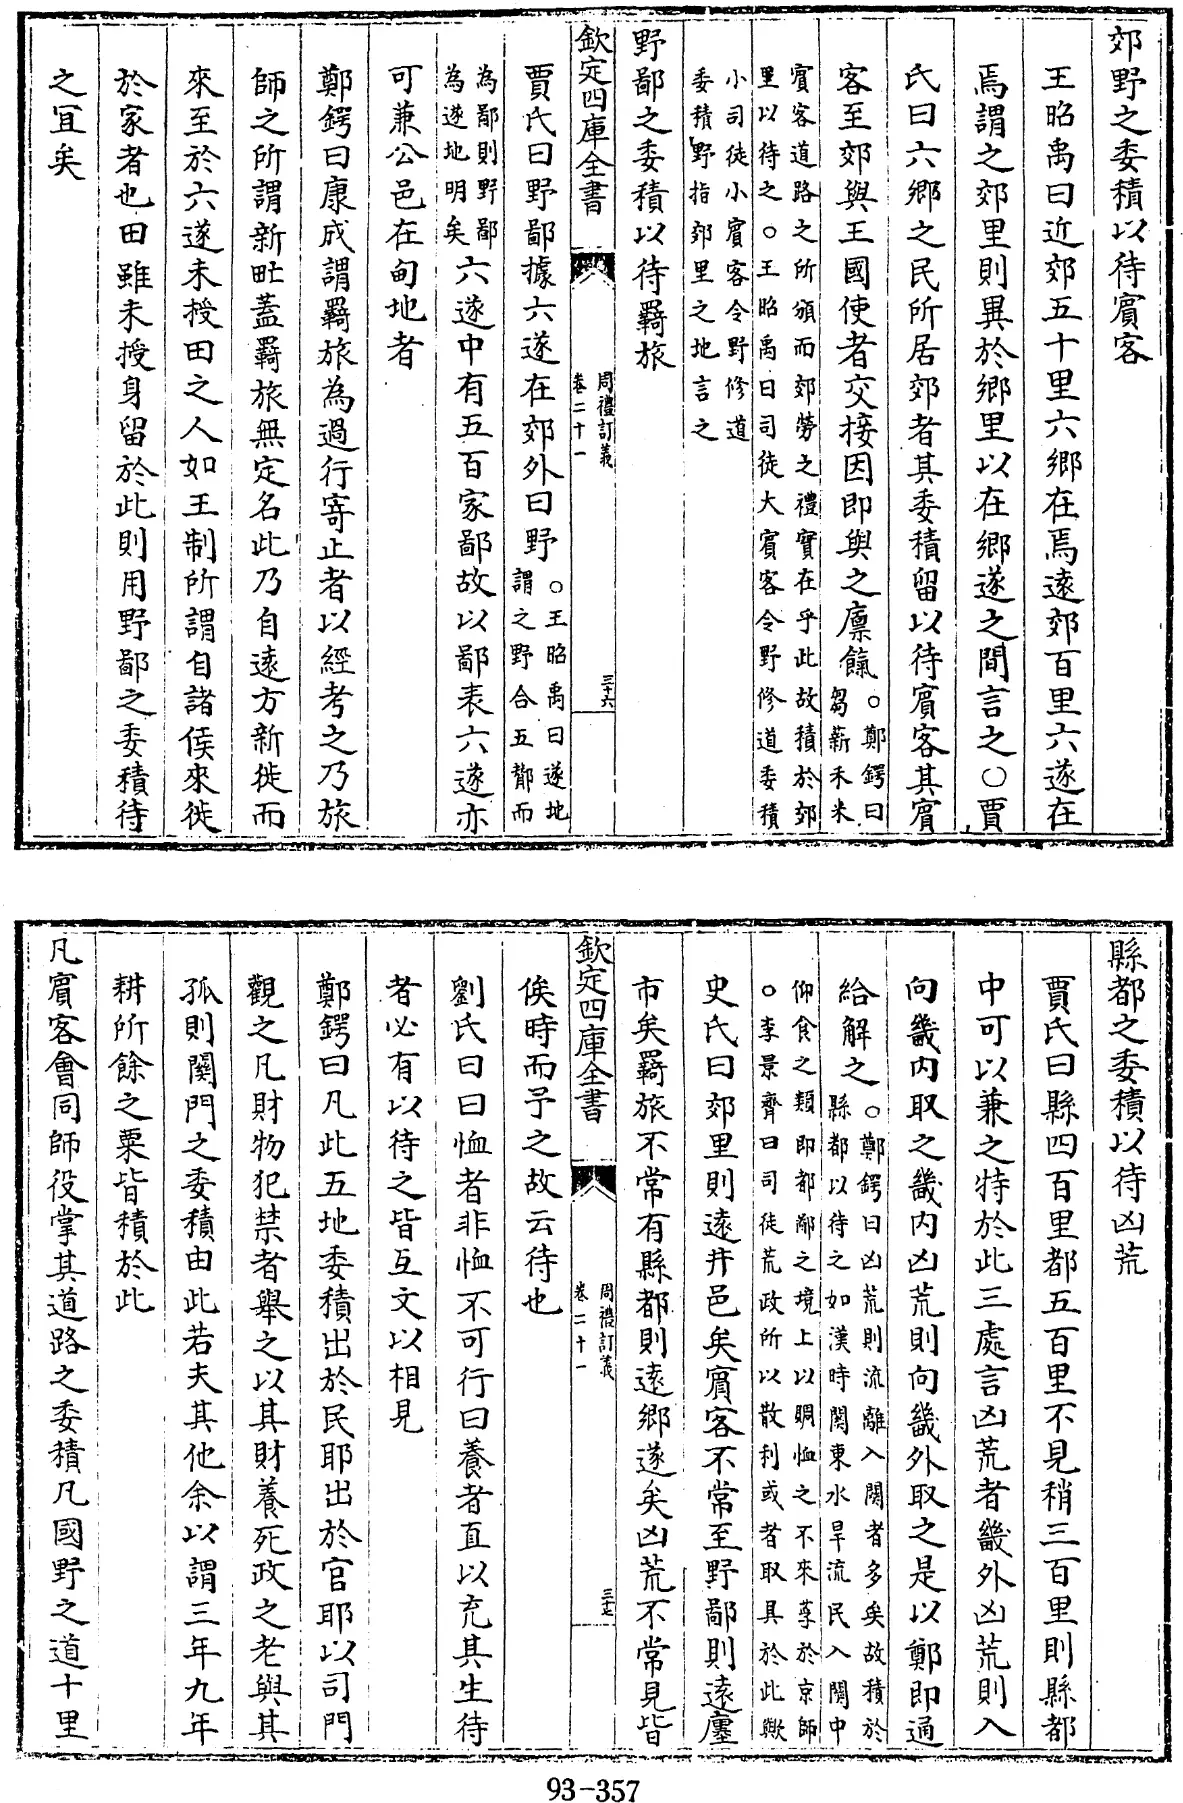 郊野之委積以待賓客
王昭禹曰近郊五十里六鄉在焉遠郊百里六遂在
焉謂之郊里則異於鄉里以在鄉遂之間言之○賈
氏曰六鄉之民所居郊者其委積留以待賓客其賓
客至郊與王國使者交接因即與之廩餼○鄭鍔曰
芻薪禾米
賓客道路之所頒而郊勞之禮實在乎此故積於郊
里以待之○王昭禹曰司徒大賓客令野修道委積
小司徒小賓客令野修道
委積野指郊里之地言之
野鄙之委積以待羇旅
欽定四庫全書
周禮訂義
卷二十一
三十六
賈氏曰野鄙據六遂在郊外曰野○王昭禹曰遂地
謂之野合五酇而
為鄙則野鄙
為遂地明矣六遂中有五百家鄙故以鄙表六遂亦
可兼公邑在甸地者
鄭鍔曰康成謂羇旅為過行寄止者以經考之乃旅
師之所謂新甿蓋羇旅無定名此乃自遠方新徙而
來至於六遂未授田之人如王制所謂自諸侯來徙
於家者也田雖未授身留於此則用野鄙之委積待
之宜矣
縣都之委積以待凶荒
賈氏曰縣四百里都五百里不見稍三百里則縣都
中可以兼之特於此三處言凶荒者畿外凶荒則入
向畿内取之畿内凶荒則向畿外取之是以鄭即通
給解之○鄭鍔曰凶荒則流離入關者多矣故積於
縣都以待之如漢時關東水旱流民入關中
仰食之類即都鄙之境上以賙恤之不來莩於京師
○李景齊曰司徒荒政所以散利或者取具於此歟
史氏曰郊里則遠井邑矣賓客不常至野鄙則遠廛
市矣羇旅不常有縣都則遠鄉遂矣凶荒不常見皆
欽定四庫全書
周禮訂義
卷二十一
三十七
俟時而予之故云待也
劉氏曰曰恤者非恤不可行曰養者直以充其生待
者必有以待之皆互文以相見
鄭鍔曰凡此五地委積出於民耶出於官耶以司門
觀之凡財物犯禁者舉之以其財養死政之老與其
孤則關門之委積由此若夫其他余以謂三年九年
耕所餘之粟皆積於此
凡賓客會同師役掌其道路之委積凡國野之道十里
93-357